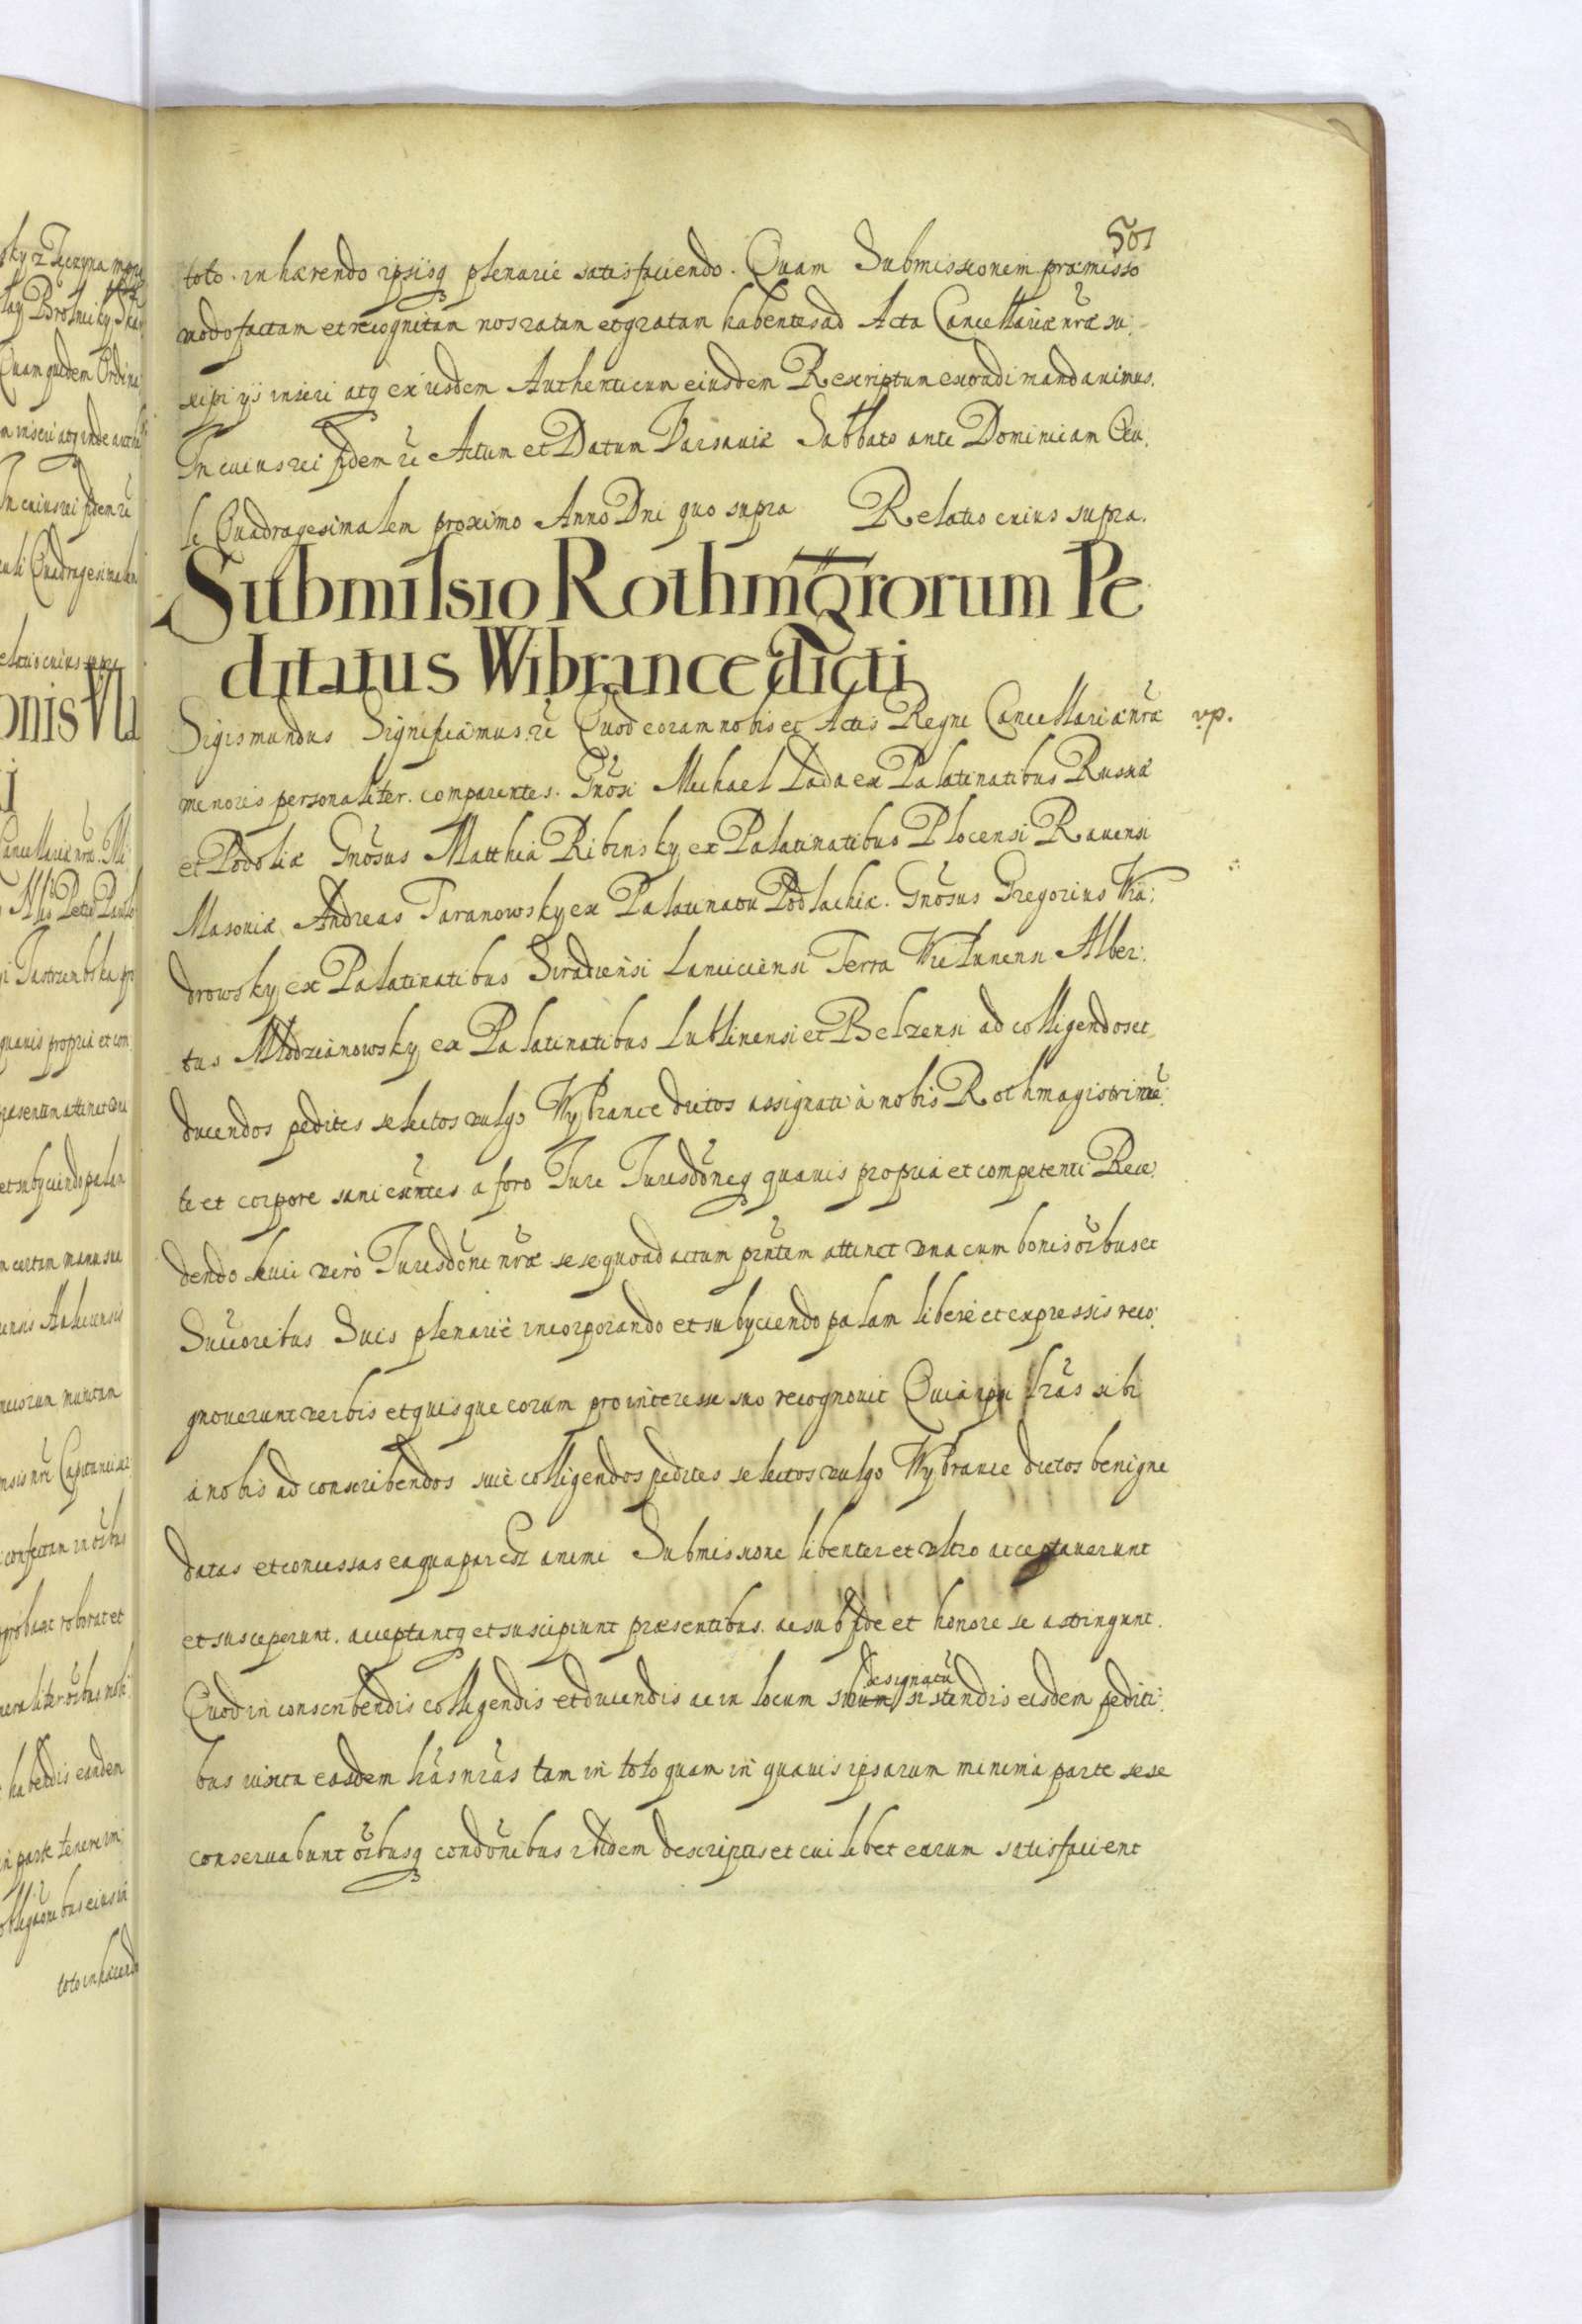 501
toto inhærendo ipsisq plenarie satisfaciendo. Quam Submissionem præmisso
modo factam et recognitam nos ratam et gratam habentes ad Acta Cancellariæ nræ su:
scipi ijs inseri atq ex iisdem Authenticum eiusdem Rescriptum extradi mandavimus.
In cuius rei fidem rc Actum et Datum Varsaviæ Sabbato ante Dominicam Ocu:
li Quadragesimalem proximo Anno Dni quo supra Relatio cuius supra.
Submissio Rothmgrorum Pe
ditatus Wibrance dicti
Sigismundus Significamus rc Quod coram nobis et Actis Regni Cancellariæ nræ vp.
minoris personaliter comparentes. Gnosi Michael Lada ex Palatinatibus Russiæ
et Podoliæ Gnosus Matthia Ribinsky ex Palatinatibus Plocensi Ravensi
Masoviæ Andreas Taranowsky ex Palatinatu Podlachiæ. Gnosus Gregorius Wia:
drowsky ex Palatinatibus Siradiensi Lanciciensi Terra Wielunensi Alber:
tus Młodzianowsky ex Palatinatibus Lublinensi et Belzensi ad colligendos et
ducendos pedites selectos vulgo Wybrance dictos assignati à nobis Rothmagistri mē:
te et corpore sani exntes a foro Jure Jurisdōneq quavis propria et competenti Rece:
dendo huic vero Jurisdōni nræ sese quoad actum pntem attinet una cum bonis oibus et
Succoribus Suis plenariè incorporando et subyciendo palam liberè et expressis reco:
gnoverunt verbis et quisque eorum pro interesse suo recognovit Quia ipsi lras sibi
a nobis ad conscribendos sivè colligendos pedites selectos vulgo Wybrance dictos benigne
datas et concessas ea qua par est animi Submissione libenter et ultro acceptaverunt
et susceperunt. acceptantq et suscipiunt præsentibus. ac sub fide et honore se astringunt.
Quod in conscribendis colligendis et ducendis ac in locum designatū sistendis eisdem pediti:
bus iuxta easdem lras nras tam in toto quam in quavis ipsarum minima parte sese
conservabunt oibusq condōnibus ibidem descriptis et cuilibet earum satisfacient